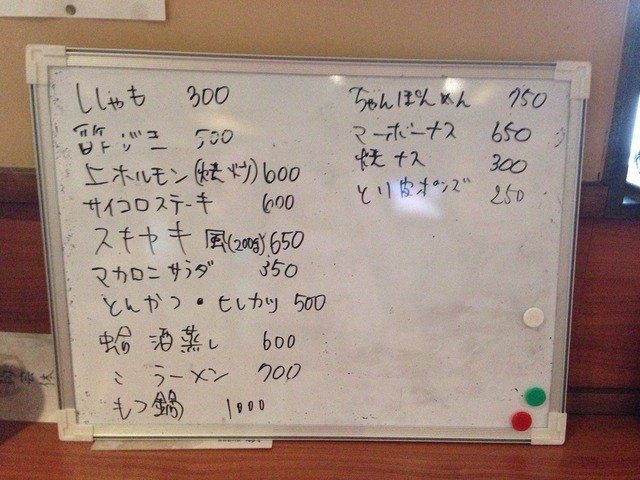 ししゃも 300
酢ジコ 500
上ホルモン(焼 ) 600
サイコロステーキ 600
スキヤキ風(200g) 650
マカロニサラダ 350
とんかつ・ヒレカツ 500
蛤 酒蒸し 600
ラーメン 700
もつ鍋 1000
ちゃんぽんめん 750
マーボーナス 650
焼ナス 300
とり皮ポンズ 250